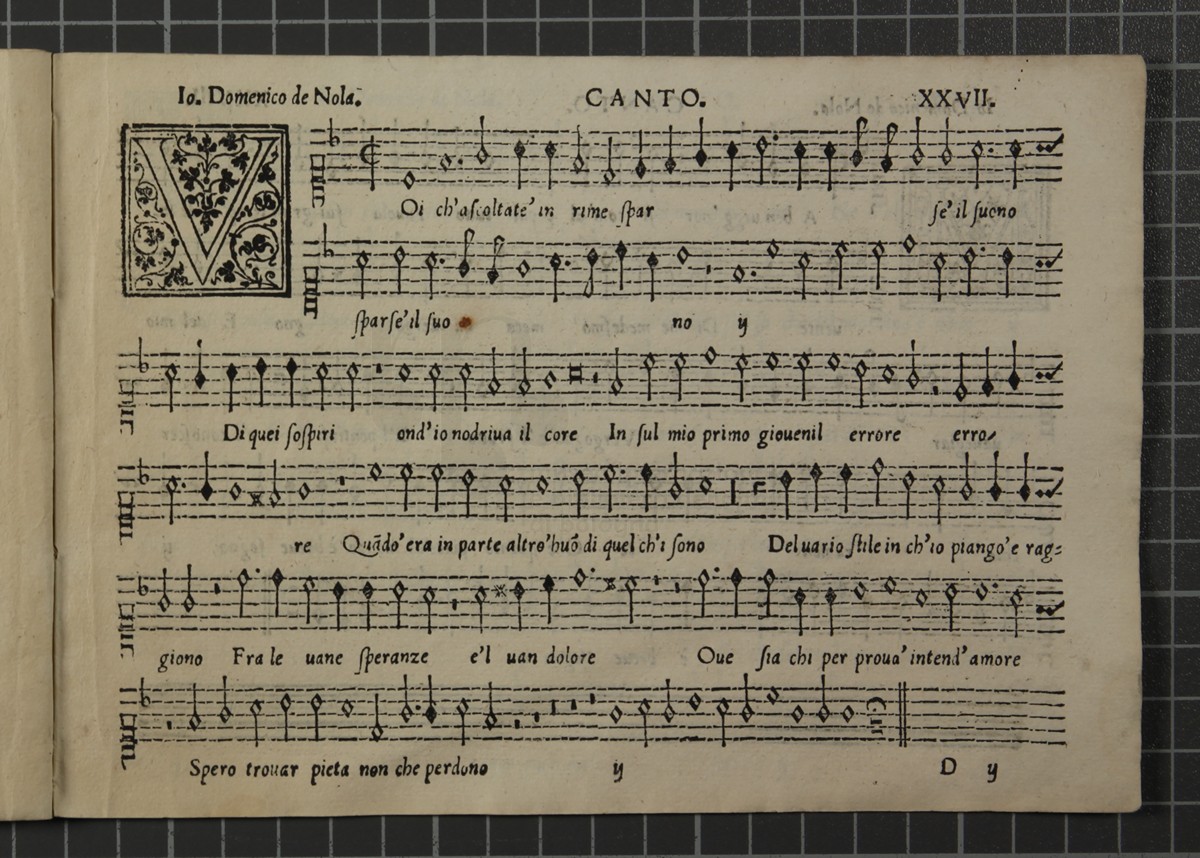 Io. Domenico de Nola. CANTO. XXVII.
V Oi ch'ascoltate' in rime spar se' il suono
sparse'il suo no ij
Di quei sospiri ond'io nodriua il core In sul mio primo giouenil errore erro/
re Quãdo'era in parte altro'huõ di quel ch'i sono Del uario stile in ch'io piango'e rag=
giono Fra le uane speranze e'l uan dolore Oue sia chi per proua'intend'amore
Spero trouar pieta non che perdono ij D ij